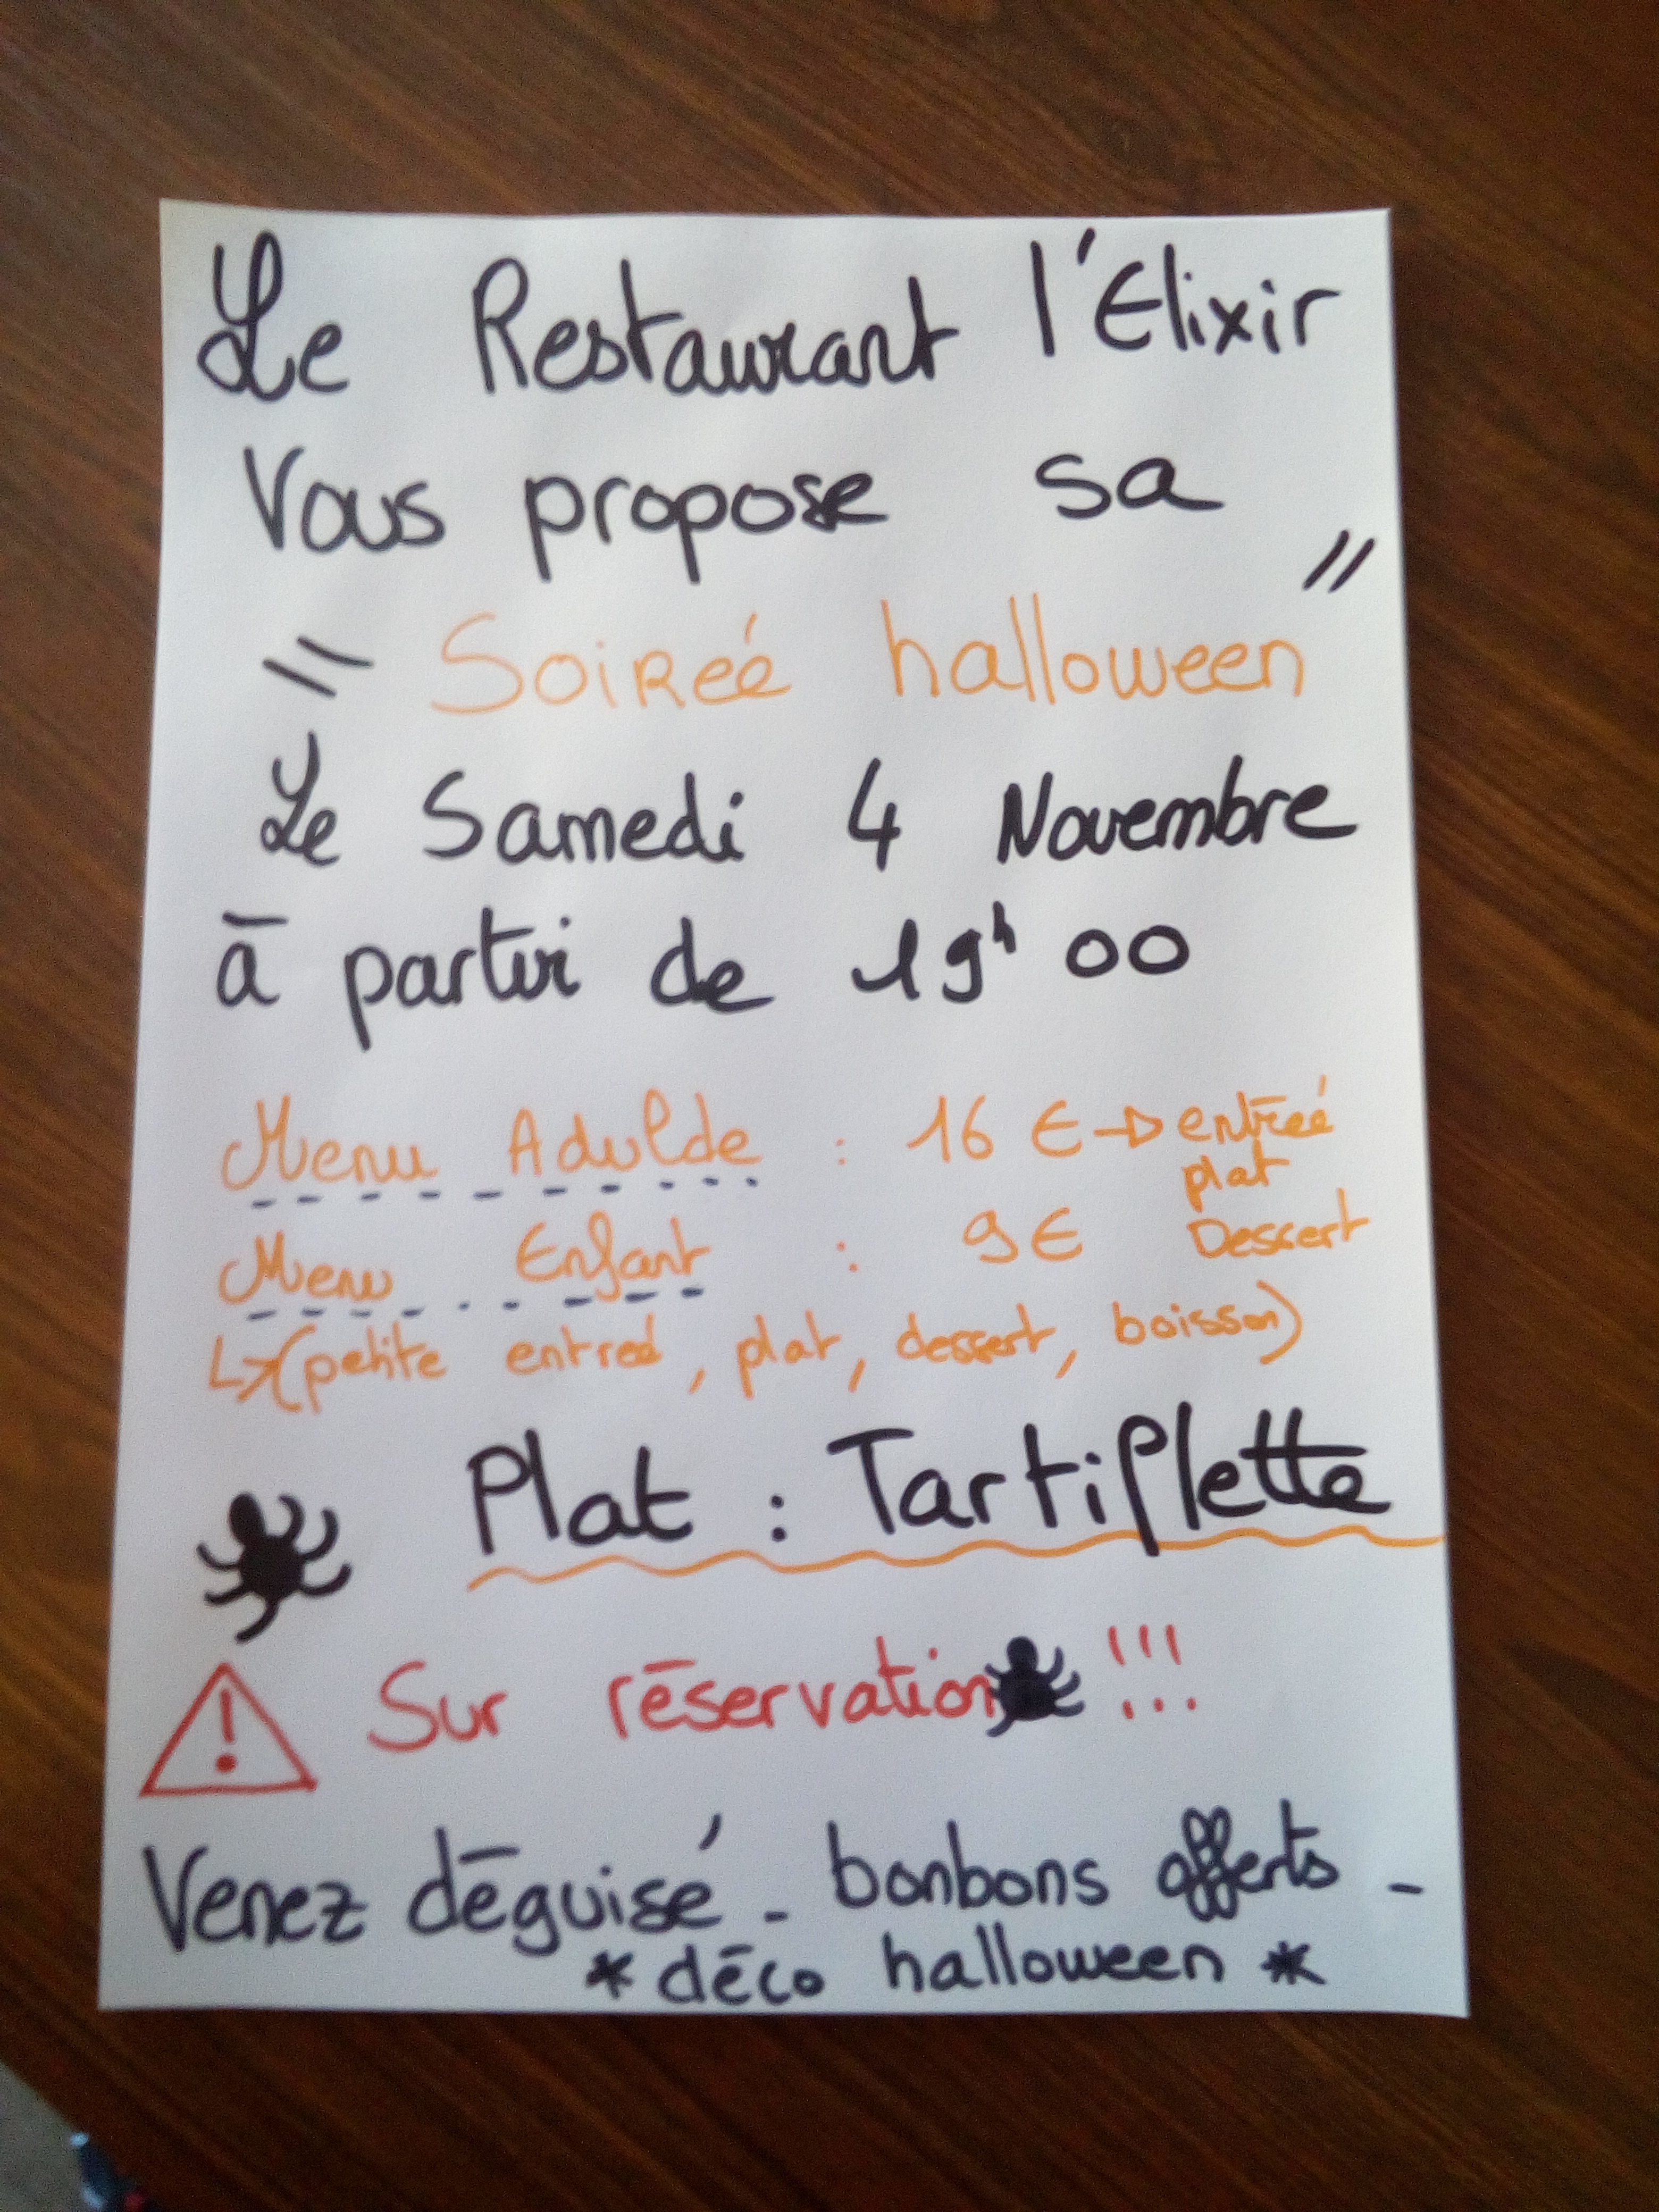 Le Restaurant l'Elixir
Vous propose sa
" Soireé halloween "
Le Samedi 4 Novembre
à partir de 19h 00
Menu Adulde : 16 € → entreé
plat
Menu Enfant : 9€ Dessert
↳ (petite entreé, plat, dessert, boisson)
Plat : Tartiflette
! Sur réservation !!!
Venez déguisé - bonbons offerts -
* déco halloween *